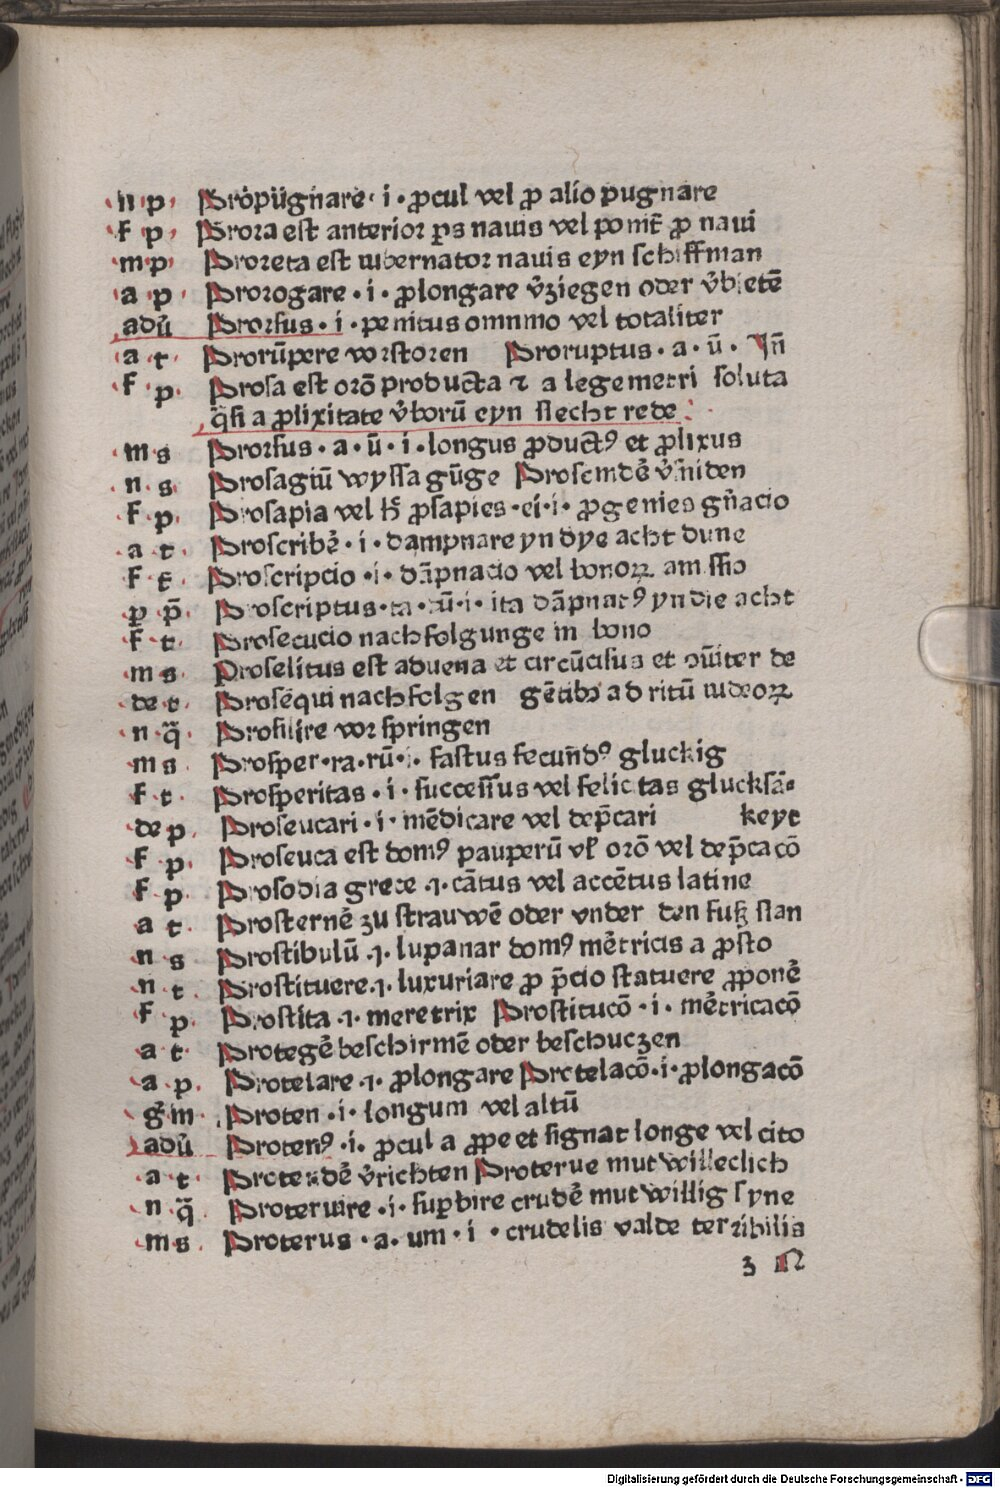 n p Propũgnare · i · ꝓcul vel ꝓ alio pugnare
f p Prora est anterior ꝑs nauis vel ponit̃ ꝓ naui
m p Proreta est gubernator nauis eyn schiffman
a p Prorogare · i · ꝓlongare v̓ziegen oder v̓bietẽ
adũ Prorsus · i · penitus omnino vel totaliter
a t Prorũpere vorstoren Proruptus · a · ũ · Jñ
f p Prosa est orõ producta ⁊ a lege metri soluta
q̃si a ꝓlixitate v̓borũ eyn slecht rede
m s Prorsus · a · ũ · i · longus ꝓductꝰ et ꝓlixus
n s Prosagiũ wyssagũge Proscindẽ v̓sniden
f p Prosapia vel h̃ ꝓsapies · ei · i · ꝓgenies gñacio
a t Proscribẽ · i · dampnare yn dye acht dune
f t Proscripcio · i · dãpnacio vel bonoꝝ amissio
ꝑ p̃ Proscriptus · ta · tũ · i · ita dãpnatꝰ yn die acht
f t Prosecucio nachfolgunge in bono
m s Proselitus est aduena et circũcisus et de
de t Prosequi nachfolgen gẽtibꝫ ad ritũ iudeoꝝ
n q̃ Prosilire vor springen
m s Prosper · ra · rũ · i · fastus fecundꝰ gluckig
f t Prosperitas · i · successus vel felicitas glucksã-
de p Proseucari · i · mẽdicare vel dep̃cari keyt
f p Proseuca est domꝰ pauperũ vl̓ orõ vel dep̃cacõ
f p Prosodia grece ·i· cãtus vel accẽtus latine
a t Prosternẽ zu strauwẽ oder vnder den fuß slan
n s Prostibulũ ·i· lupanar domꝰ mẽtricis a ꝓsto
n t Prostituere ·i· luxuriare ꝓ p̃cio statuere ꝓponẽ
f p Prostita ·i· meretrix Prostitucõ · i · mẽtricacõ
a t Protegẽ beschirmẽ oder beschuczen
a p Protelare ·i· ꝓlongare Protelacõ · i · ꝓlongacõ
g̓ m Proten · i · longum vel altũ
adũ Protenꝰ · i · ꝓcul a ꝓpe et signat longe vel cito
a t Protendẽ v̓richten Proterue mutwilleclich
n q̃ Proteruire · i · suꝑbire crudẽ mutwillig syne
m s Proterus · a · um · i · crudelis valde terribilis
3 N
Digitalisierung gefördert durch die Deutsche Forschungsgemeinschaft - DFG